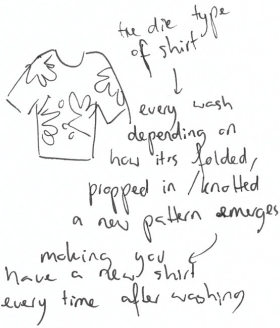 the die type
of shirt
every wash
depending on
how its folded,
propped in / knotted
a new pattern emerges
making you
have a new shirt
every time after washing